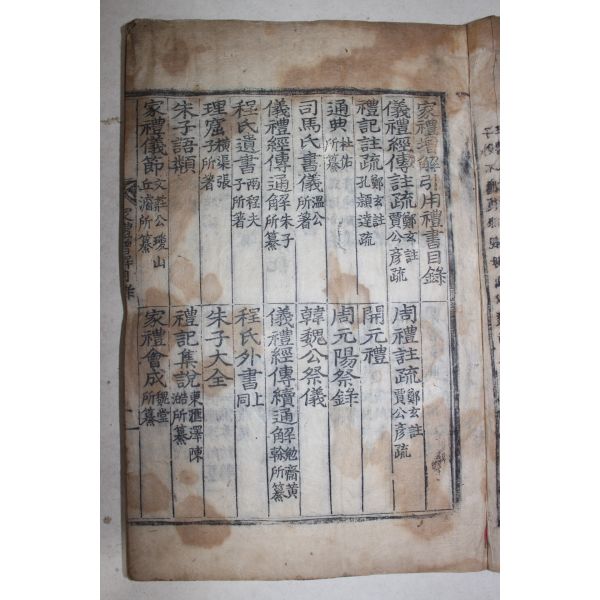 家禮增解引用禮書目錄
儀禮經傳註疏 鄭玄註 賈公彦疏
周禮註疏 鄭玄註 賈公彦疏
禮記註疏 鄭玄註 孔穎達疏
開元禮
通典 杜佑所纂
周元陽祭錄
司馬氏書儀 溫公所著
韓魏公祭儀
儀禮經傳通解 朱子所纂
儀禮經傳續通解 勉齋黃榦所纂
程氏遺書 兩程夫子所著
程氏外書 上同
理窟 橫渠張子所著
朱子大全
朱子語類
禮記集說 東匯澤陳澔所纂
家禮儀節 文莊公瓊山丘濬所纂
家禮會成 魏堂所纂
家禮增解目錄